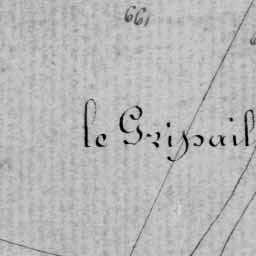 661
le Gripail